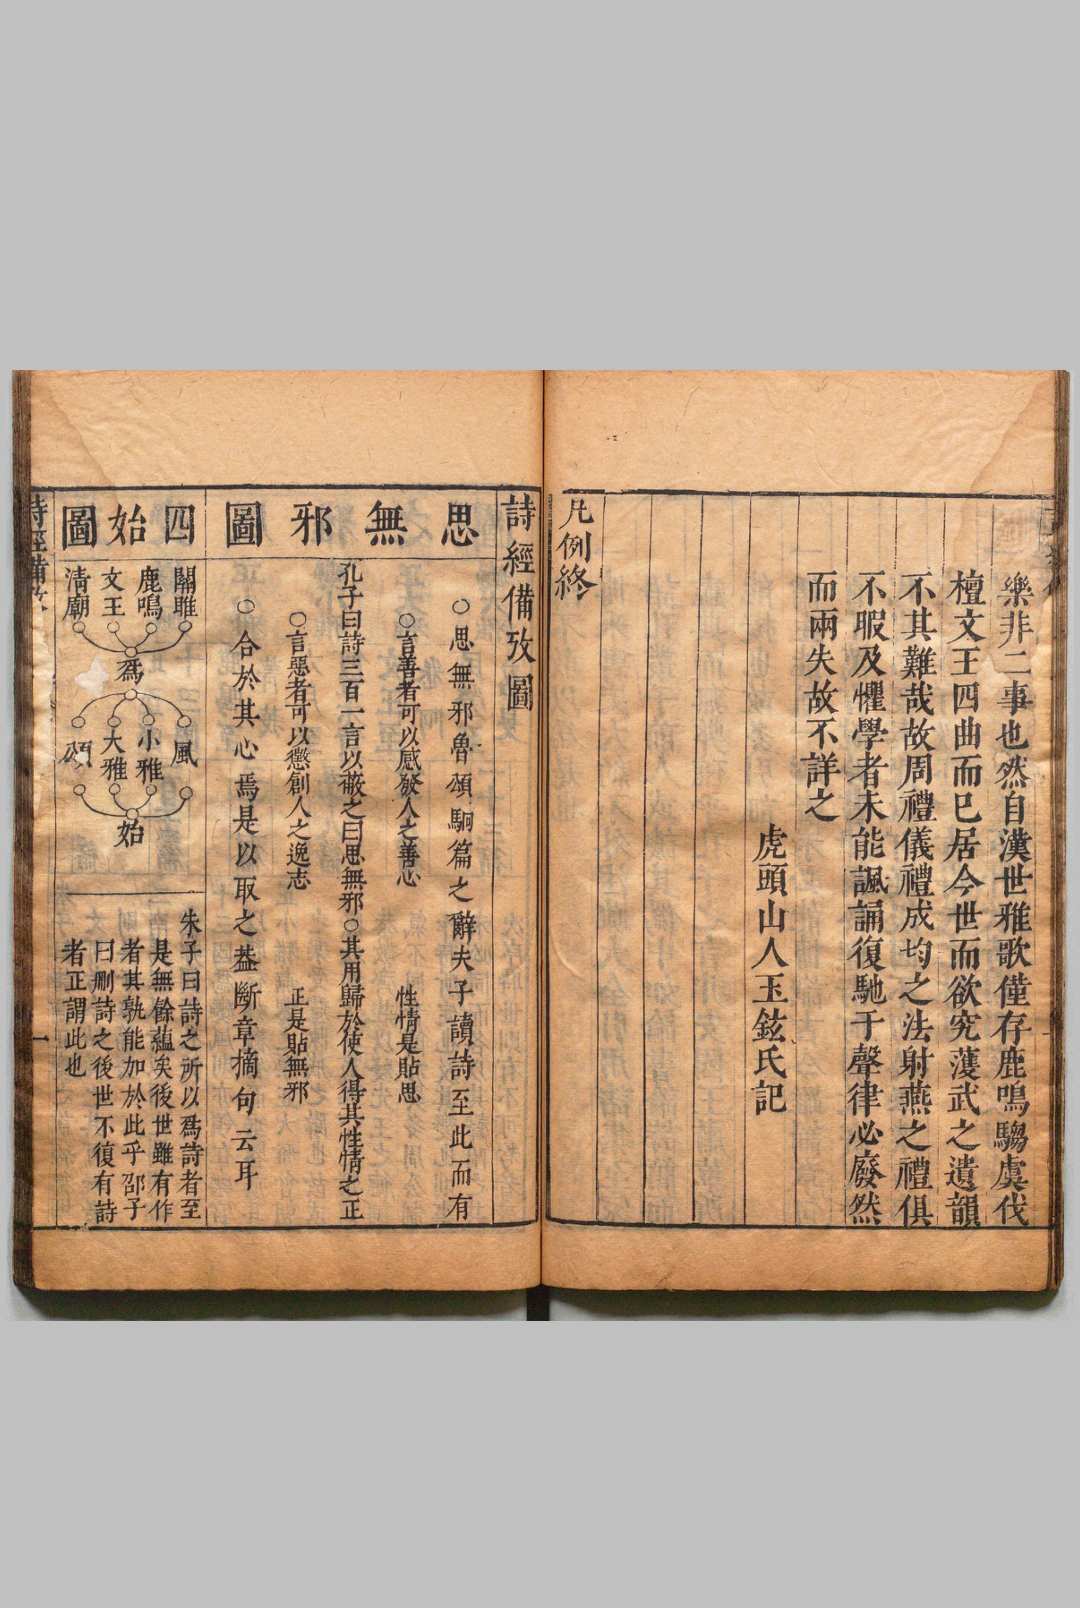 樂非二事也然自漢世雅歌僅存鹿鳴騶虞伐
檀文王四曲而已居今世而欲究濩武之遺韻
不其難哉故周禮儀禮成均之法射燕之禮俱
不暇及懼學者未能諷誦復馳于聲律必廢然
而兩失故不詳之
虎頭山人玉鉉氏記
凡例終
詩經備攷圖
思無邪圖
○思無邪魯頌駉篇之辭夫子讀詩至此而有
○言善者可以感發人之善心 性情是貼思
孔子曰詩三百一言以蔽之曰思無邪○其用歸於使人得其性情之正
○言惡者可以懲創人之逸志 正是貼無邪
○合於其心焉是以取之葢斷章摘句云耳
四始圖
關雎
鹿鳴
文王
清廟
爲
風
小雅
大雅
頌
始
朱子曰詩之所以爲詩者至
是無餘蘊矣後世雖有作
者其孰能加於此乎邵子
曰刪詩之後世不復有詩
者正謂此也
詩經備攷
一